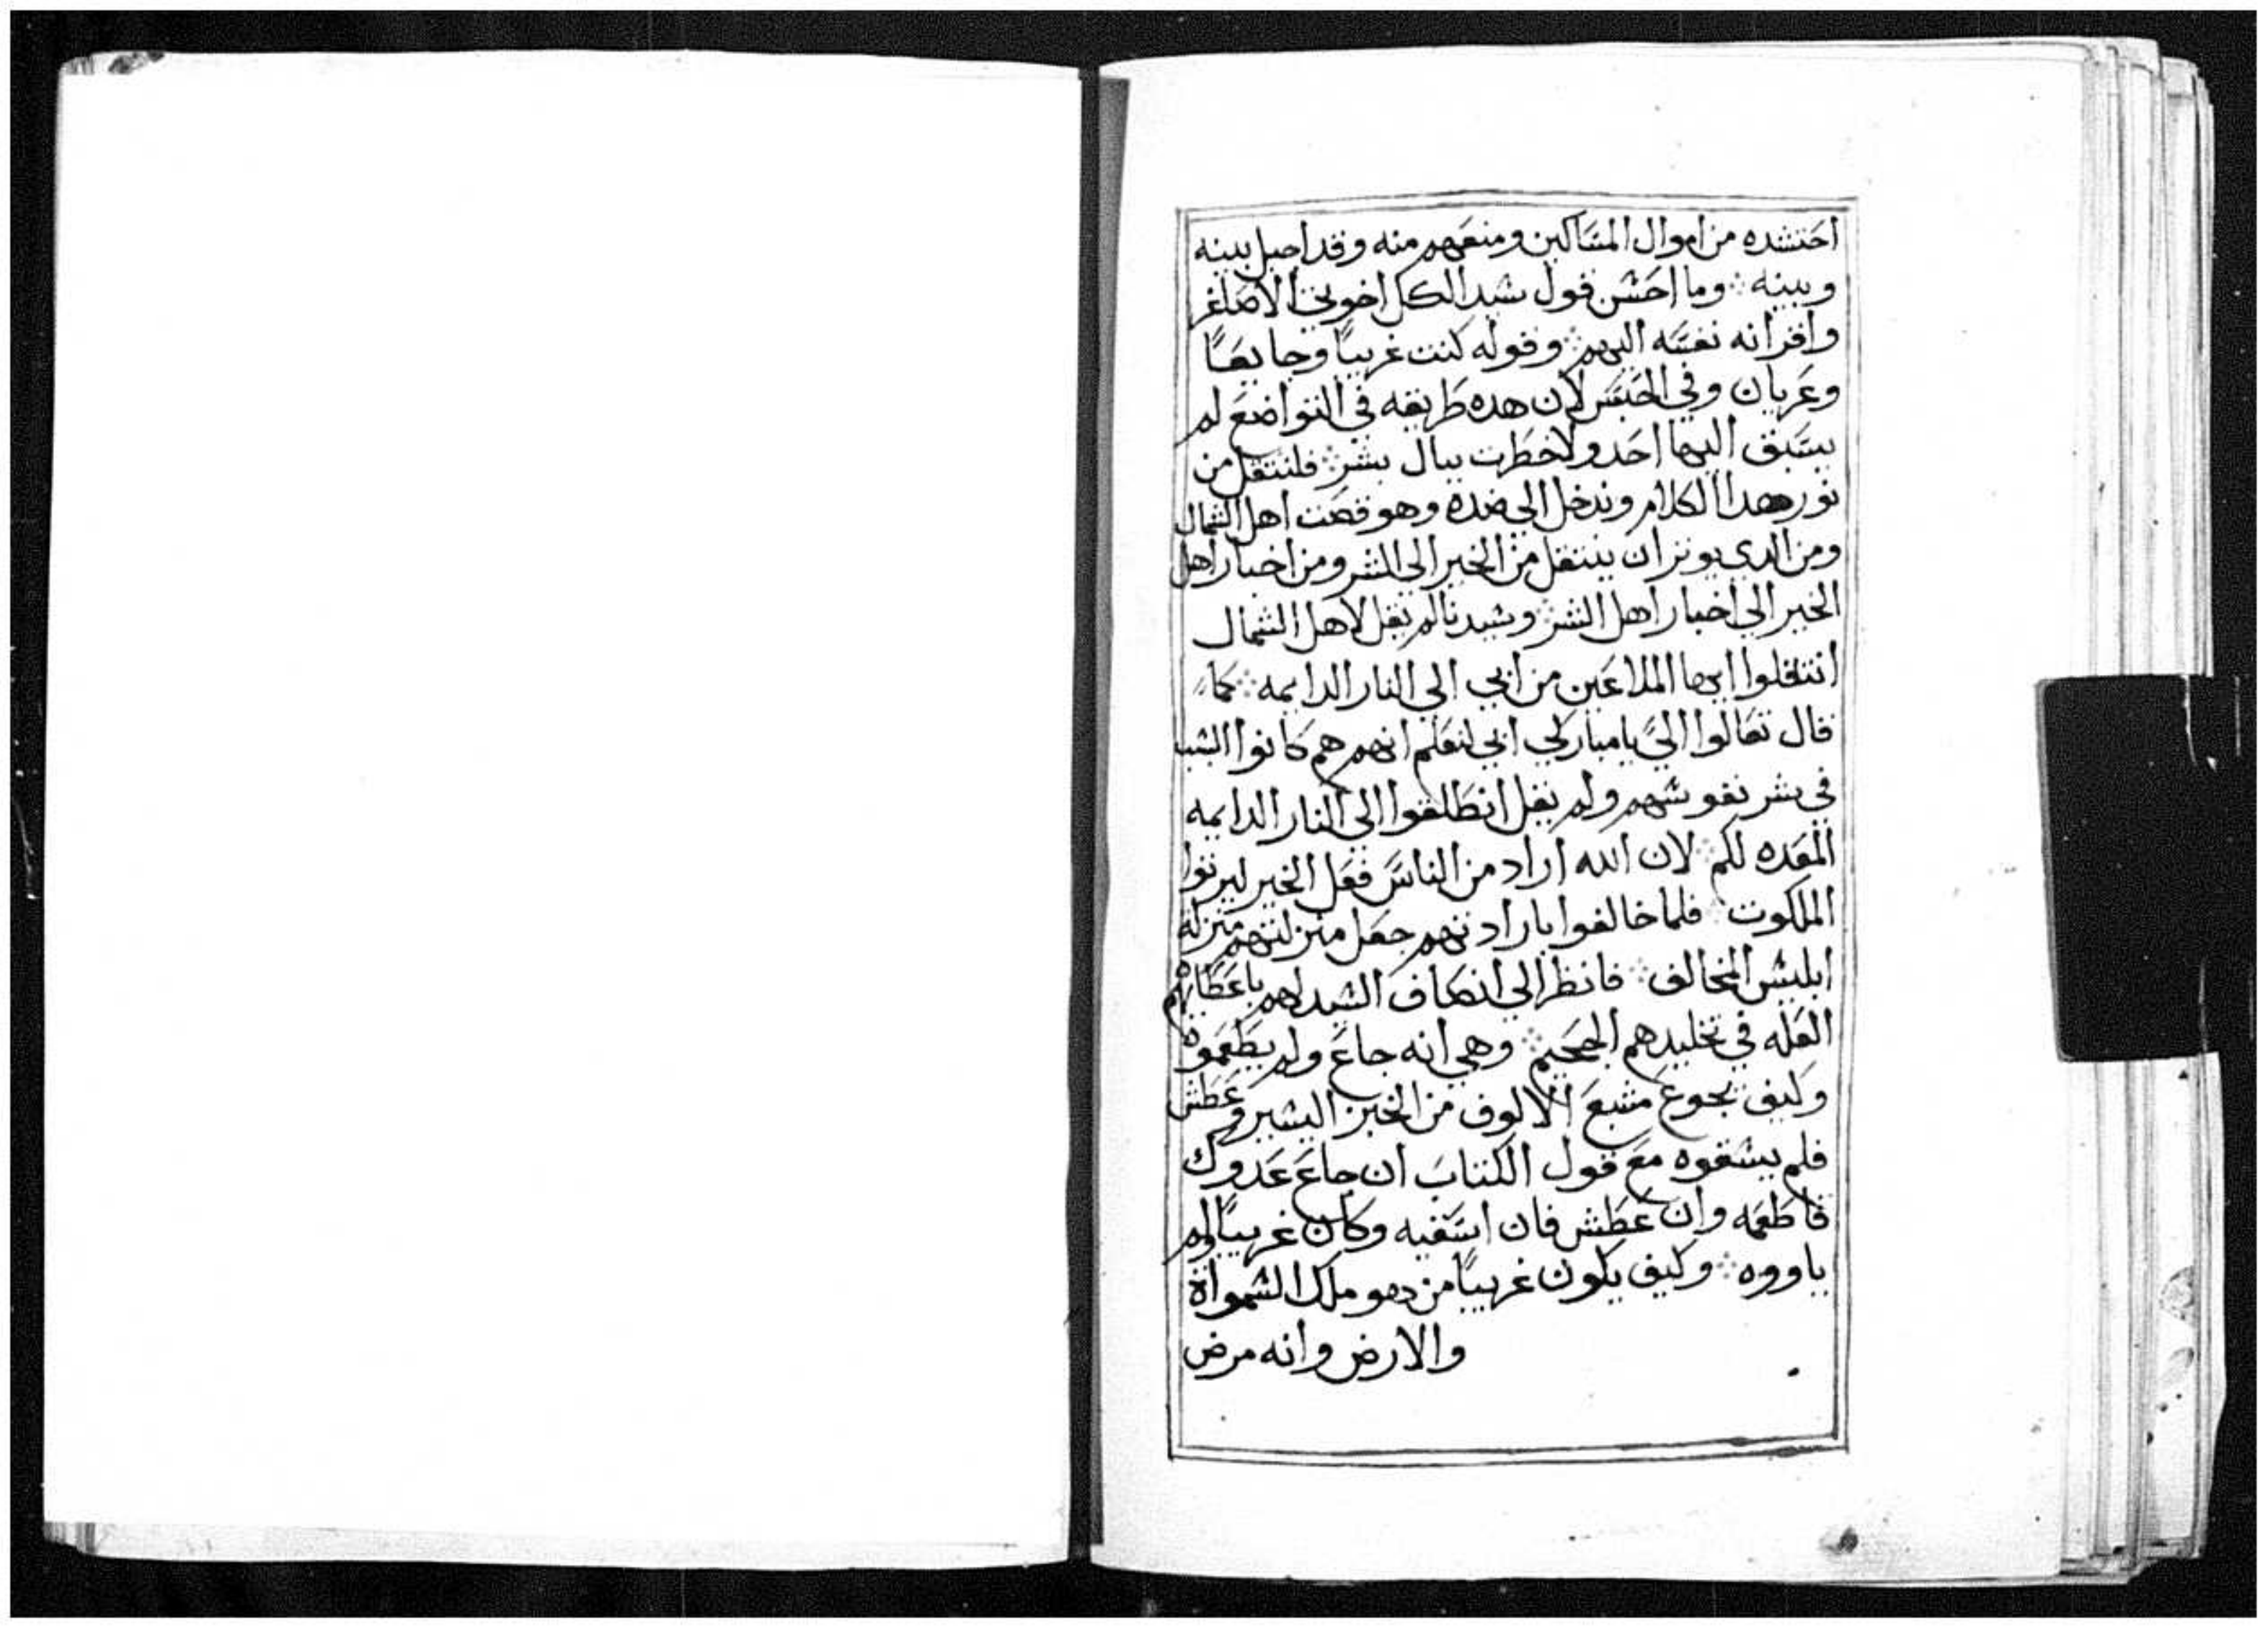 احتشده من اموال المساكين ومنعهم منه وقد احيل بينه
وبينه ܀ وما احسن قول سيد الكل اخوتي الاصاغر
واقرانه نفسه اليهم ܀ وقوله كنت غريبًا وجايعًا
وعريان وفي الحبس لان هده طريقه في التواضع لم
يسبق اليها احد ولا خطرت ببال بشر ܀ فلننتقل من
نور هدا الكلام وندخل الي ضده وهو قصت اهل الشمال
ومن الدي يوثر ان ينتقل من الخير الي الشر ومن اخبار اهل
الخير الي اخبار اهل الشر ܀ وسيدنا لم يقل لاهل الشمال
انتقلوا ايها الملاعين من ابي الي النار الدايمه ܀ كما
قال تعالوا اليّ يا مباركي ابي لنعلم انهم هم كانوا السبب
في شر نفوسهم ولم يقل انطلقوا الي النار الدايمه
المعده لكم ܀ لان الله اراد من الناس فعل الخير ليرثوا
الملكوت ܀ فلما خالفوا بارادتهم جعل منزلتهم منزلة
ابليس المخالف ܀ فانظر الي انصاف السيد لهم باعطايهم
العله في تخليدهم الجحيم ܀ وهي انه جاع ولم يطعموه
وكيف يجوع مشبع الالوف من الخبز اليسير وعطش
فلم يسقوه مع قول الكتاب ان جاع عدوك
فاطعمه وان عطش فان اسقيه وكان غريبًا ولم
ياووه ܀ وكيف يكون غريبًا من هو ملك السمواة
والارض وانه مرض